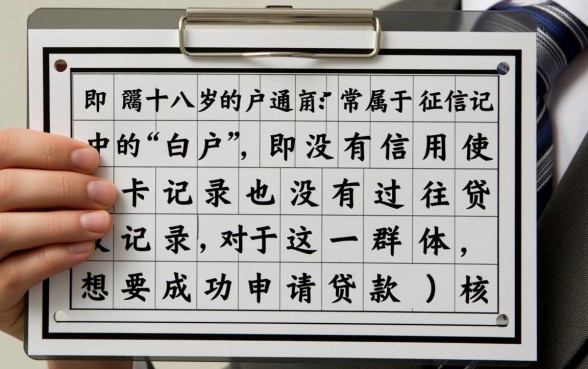 即十八岁的户通常属于征信记
中的“白户”，即没有信用使
卡记录也没有过往贷
记录，对于这一群体，
想要成功申请贷款）核